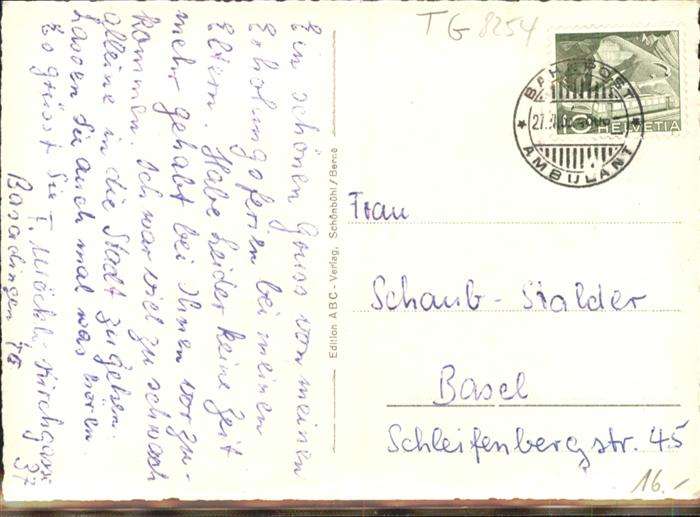 Ein schönen Gruss von meinen
Erholungsferien bei meinen
Eltern. Habe leider keine Zeit
mehr gehabt bei Ihnen vorzu-
kommen. Ich war viel zu schwach
alleine in die Stadt zu gehen.
Lassen Sie auch mal was hören.
Es grüsst Sie T. Möckli-Kirchgasse
37
Basadingen TG
Edition ABC - Verlag, Schönbühl/Berne
TG 8254
BAHNPOST
AMBULANT
10 HELVETIA
Frau
Schaub-Stalder
Basel
Schleifenbergstr. 45
16.-